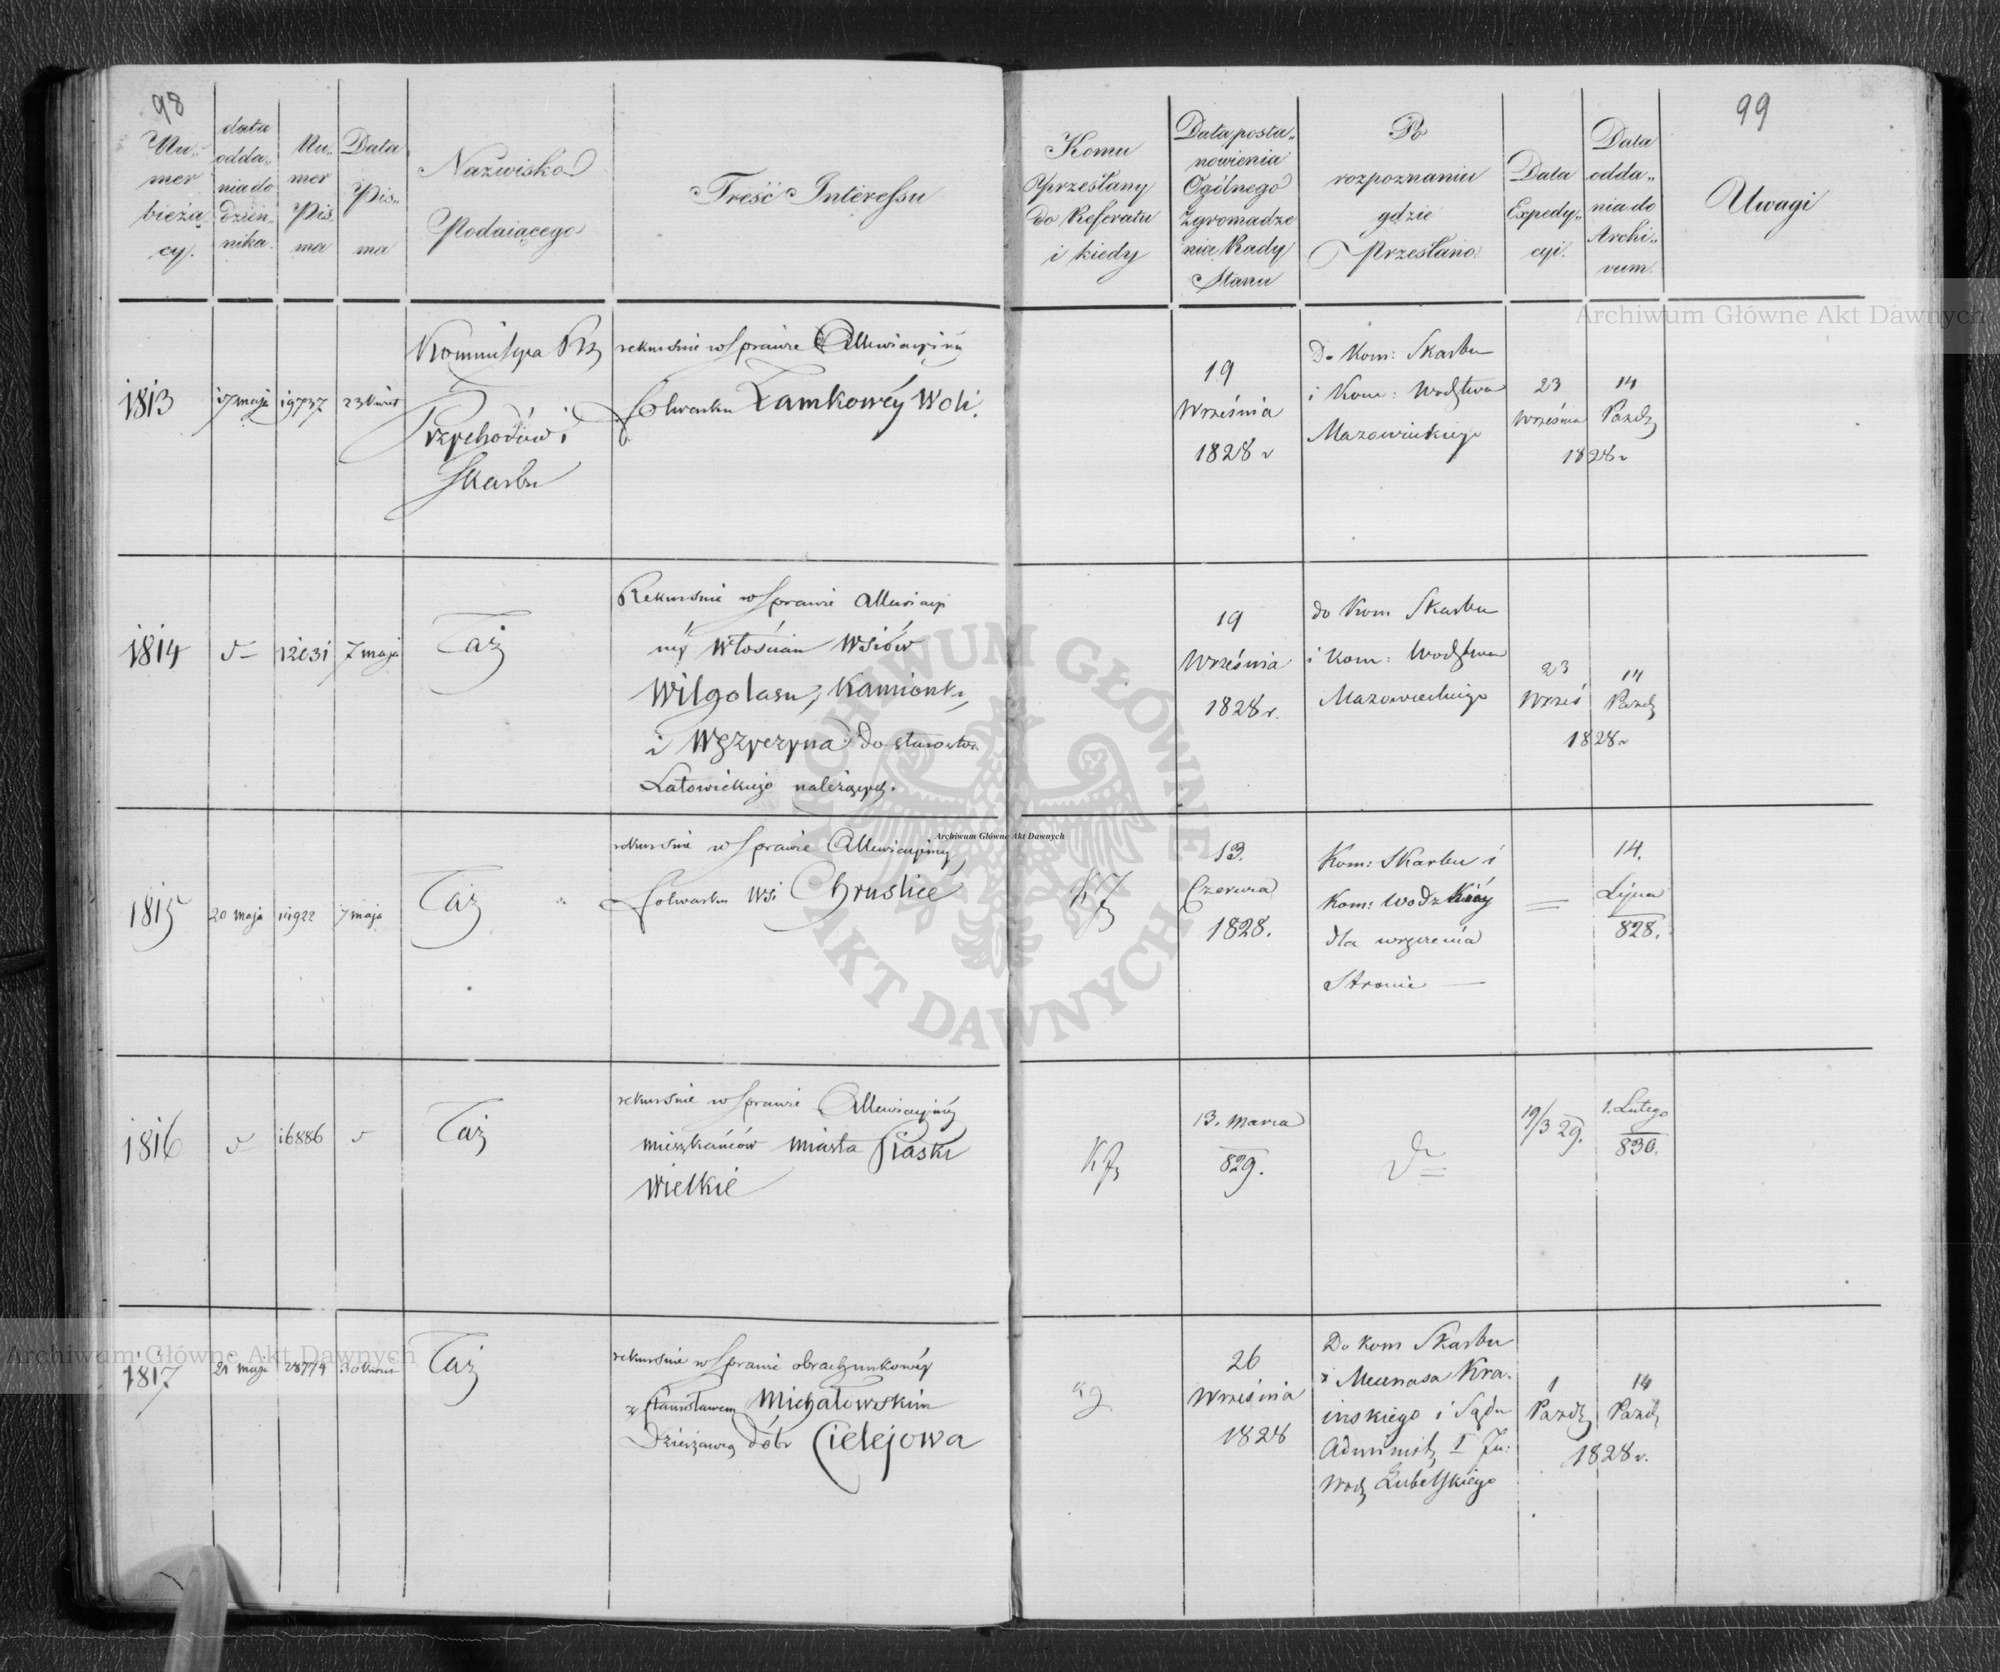 98
Nu-
mer
bieżą
cy.
data
odda-
nia do
dzien-
nika.
Nu-
mer
Pis
ma
Data
Pis-
ma
Nazwisko
Podaiącego
Treść Interessu
Komu
przesłany
do Referatu
i kiedy
Data posta-
nowienia
Ogólnego
Zgromadze
nia Rady
Stanu
Po
rozpoznaniu
gdzie
Przesłano
Data
Expedy-
cyi.
Data
odda-
nia do
Archi-
vum.
99
Uwagi
1813
17 maja
19737
23 Kwiet
Kommissya Rz
Przychodów i
Skarbu
rekursnie w sprawie Allewiacyiney
folwarku Zamkowéy Woli.
19
Września
1828 r
Do Kom: Skarbu
i Kom: Wodztwa
Mazowieckiego
23
Września
14
Pazdz
1828 r
1814
12031
7 maja
Taż
Rekursnie w sprawie Allewiacyi
néy Włościan Wsiów
Wilgolasu, Kamionki,
i Wężyczyna do starostwa
Latowickiego należących.
19
Września
1828 r.
do Kom Skarbu
i Kom: Wodztwa
Mazowieckiego
23
Wrześ
14
Pazdz
1828 r
1815
20 maja
14922
7 maja
Taż
rekursnie w sprawie Allewiacyiney
folwarku Wsi Chruslice
13.
Czerwca
1828.
Kom: Skarbu i
Kom: Wodz Kiéy
dla wręczenia
Stronie —
=
14.
Lipca
828.
1816
16886
Taż
rekursnie w sprawie Allewiacyinéy
mieszkańców miasta Piaski
Wielkie
13. Marca
829.
19/3 29.
1. Lutego
830.
1817
21 maja
28774
30 Kwiet
Taż
rekursnie w sprawie obrachunkowéy
z Stanisławem Michałowskim
Dzierżawcą dóbr Cielejowa
26
Września
1828
Do Kom Skarbu
i Mecenasa Kra-
ińskiego i Sądu
Administ I In:
Wodz Lubelskiego
1
Pazdz
14
Pazdz
1828 r.
Archiwum Główne Akt Dawnych
Archiwum Główne Akt Dawnych
Archiwum Główne Akt Dawnych
ARCHIWUM GŁÓWNE AKT DAWNYCH